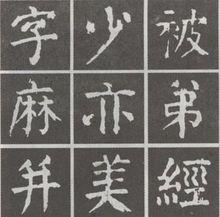 字少被
麻亦弟
并美經